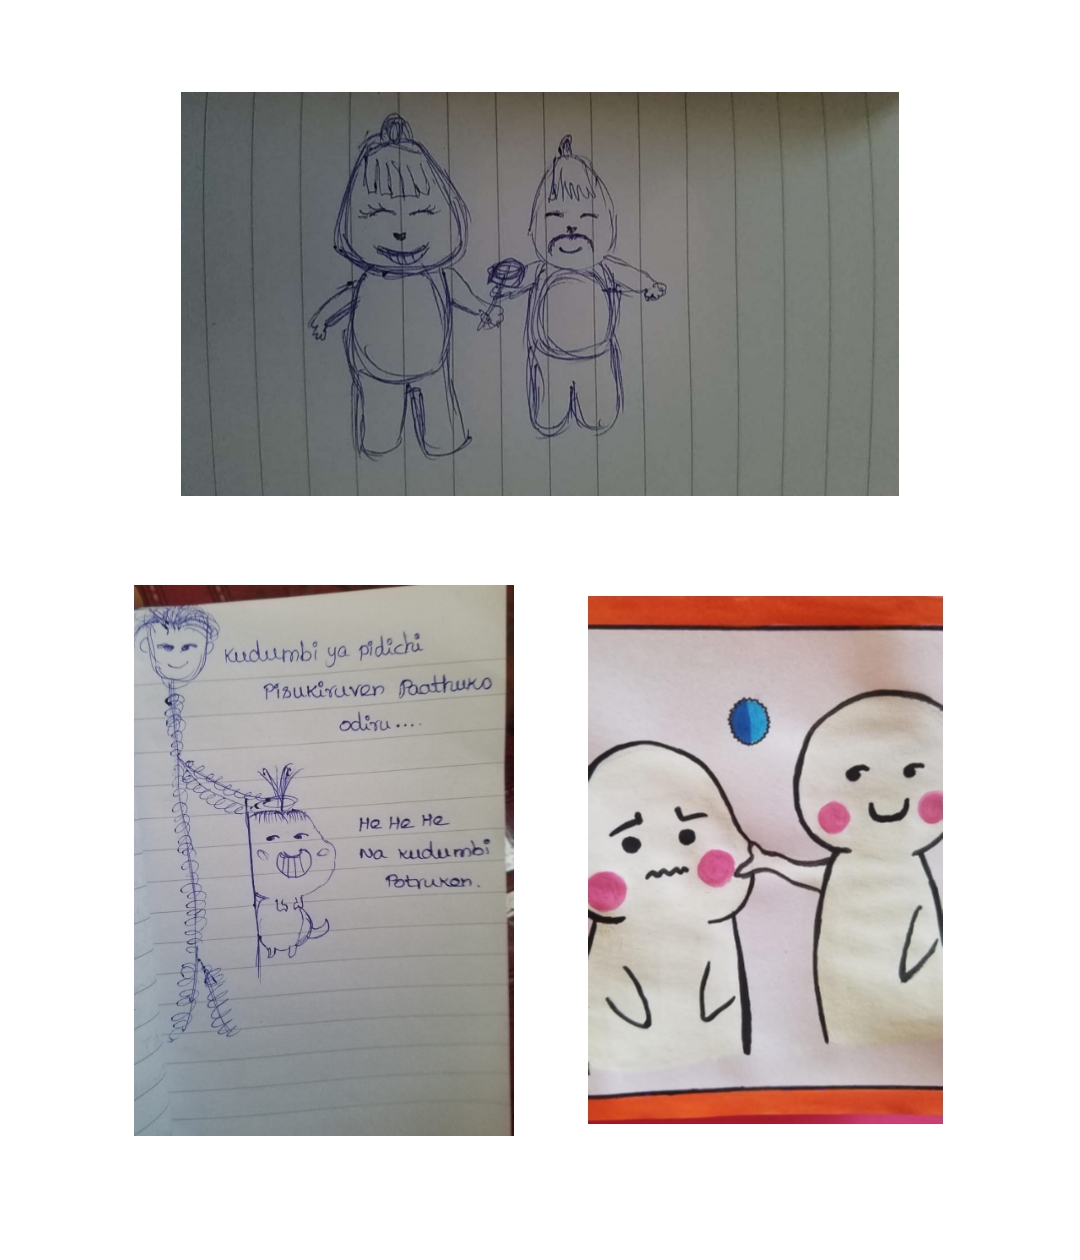 kudumbi ya pidichi
Pisukiruven Paathuko
odiru....
He He He
Na kudumbi
Potruken.